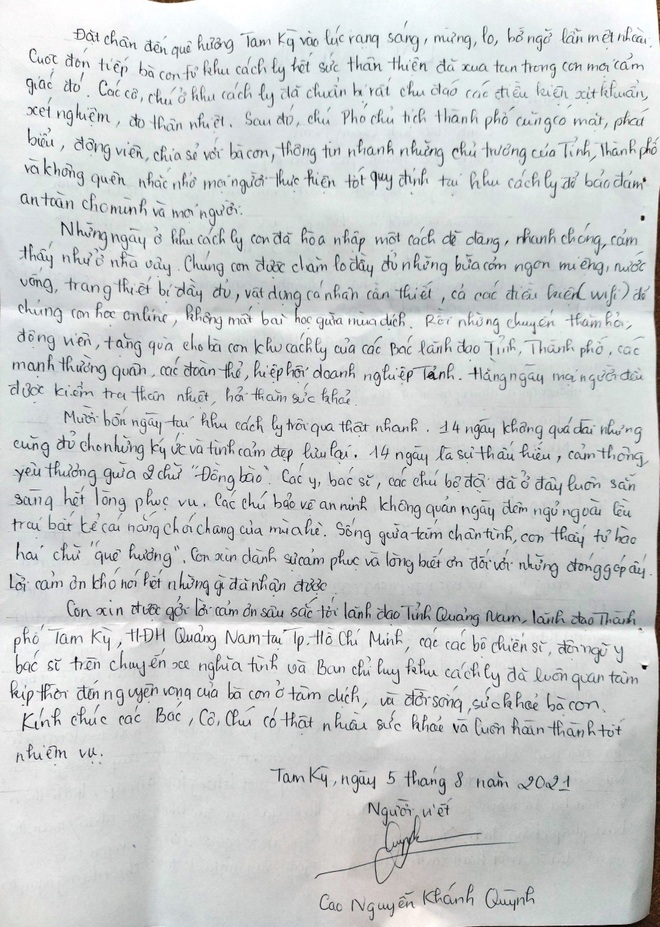 Đặt chân đến quê hương Tam Kỳ vào lúc rạng sáng, mừng, lo, bỡ ngỡ lẫn mệt nhoài.
Cuộc đón tiếp bà con từ khu cách ly hết sức thân thiện đã xua tan trong con mọi cảm
giác đó. Các cô, chú ở khu cách ly đã chuẩn bị rất chu đáo các điều kiện xịt khuẩn,
xét nghiệm, đo thân nhiệt. Sau đó, chú Phó chủ tịch thành phố cũng có mặt, phát
biểu, động viên, chia sẻ với bà con, thông tin nhanh những chủ trương của Tỉnh, Thành phố
và không quên nhắc nhở mọi người thực hiện tốt quy định tại khu cách ly để bảo đảm
an toàn cho mình và mọi người.
Những ngày ở khu cách ly con đã hòa nhập một cách dễ dàng, nhanh chóng, cảm
thấy như ở nhà vậy. Chúng con được chăm lo đầy đủ những bữa cơm ngon miệng, nước
uống, trang thiết bị đầy đủ, vật dụng cá nhân cần thiết, cả các điều kiện (wifi) để
chúng con học online, không mất bài học giữa mùa dịch. Rồi những chuyến thăm hỏi,
động viên, tặng quà cho bà con khu cách ly của các Bác lãnh đạo Tỉnh, Thành phố, các
mạnh thường quân, các đoàn thể, hiệp hội doanh nghiệp Tỉnh. Hàng ngày mọi người đều
được kiểm tra thân nhiệt, hỏi thăm sức khoẻ.
Mười bốn ngày tại khu cách ly trôi qua thật nhanh. 14 ngày không quá dài nhưng
cũng đủ cho những ký ức và tình cảm đẹp lưu lại. 14 ngày là sự thấu hiểu, cảm thông,
yêu thương giữa 2 chữ "Đồng bào". Các y, bác sĩ, các chú bộ đội đã ở đây luôn sẵn
sàng hết lòng phục vụ. Các chú bảo vệ an ninh không quản ngày đêm ngủ ngoài lều
trại bất kể cái nắng chói chang của mùa hè. Sống giữa tấm chân tình, con thấy tự hào
hai chữ "quê hương". Con xin dành sự cảm phục và lòng biết ơn đối với những đóng góp ấy.
Lời cảm ơn khó nói hết những gì đã nhận được.
Con xin được gởi lời cảm ơn sâu sắc tới lãnh đạo Tỉnh Quảng Nam, lãnh đạo Thành
phố Tam Kỳ, HĐH Quảng Nam tại Tp. Hồ Chí Minh, các các bộ chiến sĩ, đội ngũ y
bác sĩ trên chuyến xe nghĩa tình và Ban chỉ huy khu cách ly đã luôn quan tâm
kịp thời đến nguyện vọng của bà con ở tâm dịch, và đời sống, sức khoẻ bà con.
Kính chúc các Bác, Cô, Chú có thật nhiều sức khoẻ và luôn hoàn thành tốt
nhiệm vụ.
Tam Kỳ, ngày 5 tháng 8 năm 2021
Người viết
Quỳnh
Cao Nguyễn Khánh Quỳnh